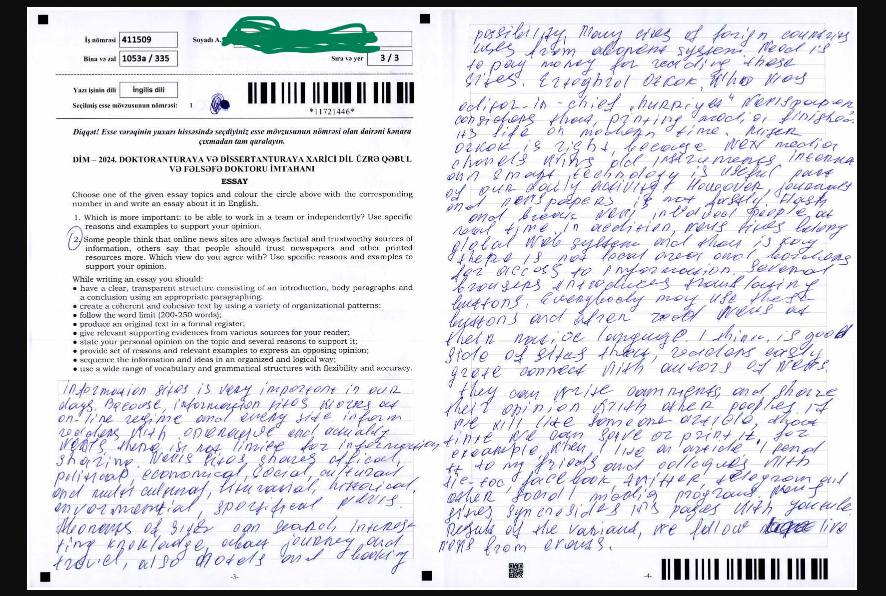 İş nömrəsi 411509
Soyadı A.
Bina və zal 1053a / 335
Sıra və yer 3 / 3
Yazı işinin dili İngilis dili
Seçilmiş esse mövzusunun nömrəsi: 1
*11721446*
Diqqət! Esse vərəqinin yuxarı hissəsində seçdiyiniz esse mövzusunun nömrəsi olan dairəni kənara
çıxmadan tam qaralayın.
DİM – 2024. DOKTORANTURAYA VƏ DİSSERTANTURAYA XARİCİ DİL ÜZRƏ QƏBUL
VƏ FƏLSƏFƏ DOKTORU İMTAHANI
ESSAY
Choose one of the given essay topics and colour the circle above with the corresponding
number in and write an essay about it in English.
1. Which is more important: to be able to work in a team or independently? Use specific
reasons and examples to support your opinion.
2. Some people think that online news sites are always factual and trustworthy sources of
information, others say that people should trust newspapers and other printed
resources more. Which view do you agree with? Use specific reasons and examples to
support your opinion.
While writing an essay you should:
• have a clear, transparent structure consisting of an introduction, body paragraphs and
a conclusion using an appropriate paragraphing;
• create a coherent and cohesive text by using a variety of organizational patterns;
• follow the word limit (200-250 words);
• produce an original text in a formal register;
• give relevant supporting evidences from various sources for your reader;
• state your personal opinion on the topic and several reasons to support it;
• provide set of reasons and relevant examples to express an opposing opinion;
• sequence the information and ideas in an organized and logical way;
• use a wide range of vocabulary and grammatical structures with flexibility and accuracy.
information sites is very important in our
days. Because, information sites works at
on-line regime and every site inform
readers with operative and actually
News. there is not limite for information
sharing. News sites shares official,
political, economical, social cultural
and multi cultural, historical,
sportifical news.
of sites can search interes-
ting knowledge, about journey and
travel, also hotels and booking
-3-
possibility. Many sites of foreign countries
uses from system. Need is
to pay money for reading these
sites. Ertoghrul Ozkok, who was
editor-in-chief "hurriyet" Newspaper
considers that, printing media finished
its life on modern time. Mister
Ozkok is right, because new media
channels old instruments, internet
and smart technology is useful part
of our daily activity. However, journals
and newspapers is not fastly. Flash
and break news involved people at
real time, in addition, news sites
global web system and than is why
there is not local area and borders
for access to information. Several
browsers introduces translating
buttons. Everybody may use these
buttons and after read News at
their native language. I think, is good
side of sites that, readers easily
connect with autors of News.
they can write comments and share
their opinion with other peoples. if
we will like someone article,
time we can save or print it. for
example when I like an article I send
it to my friends and collegues with
tic-toc, facebook, twitter, telegram and
other social media programs.
sites their pages with youtube
Result of the we follow live
news from
-4-